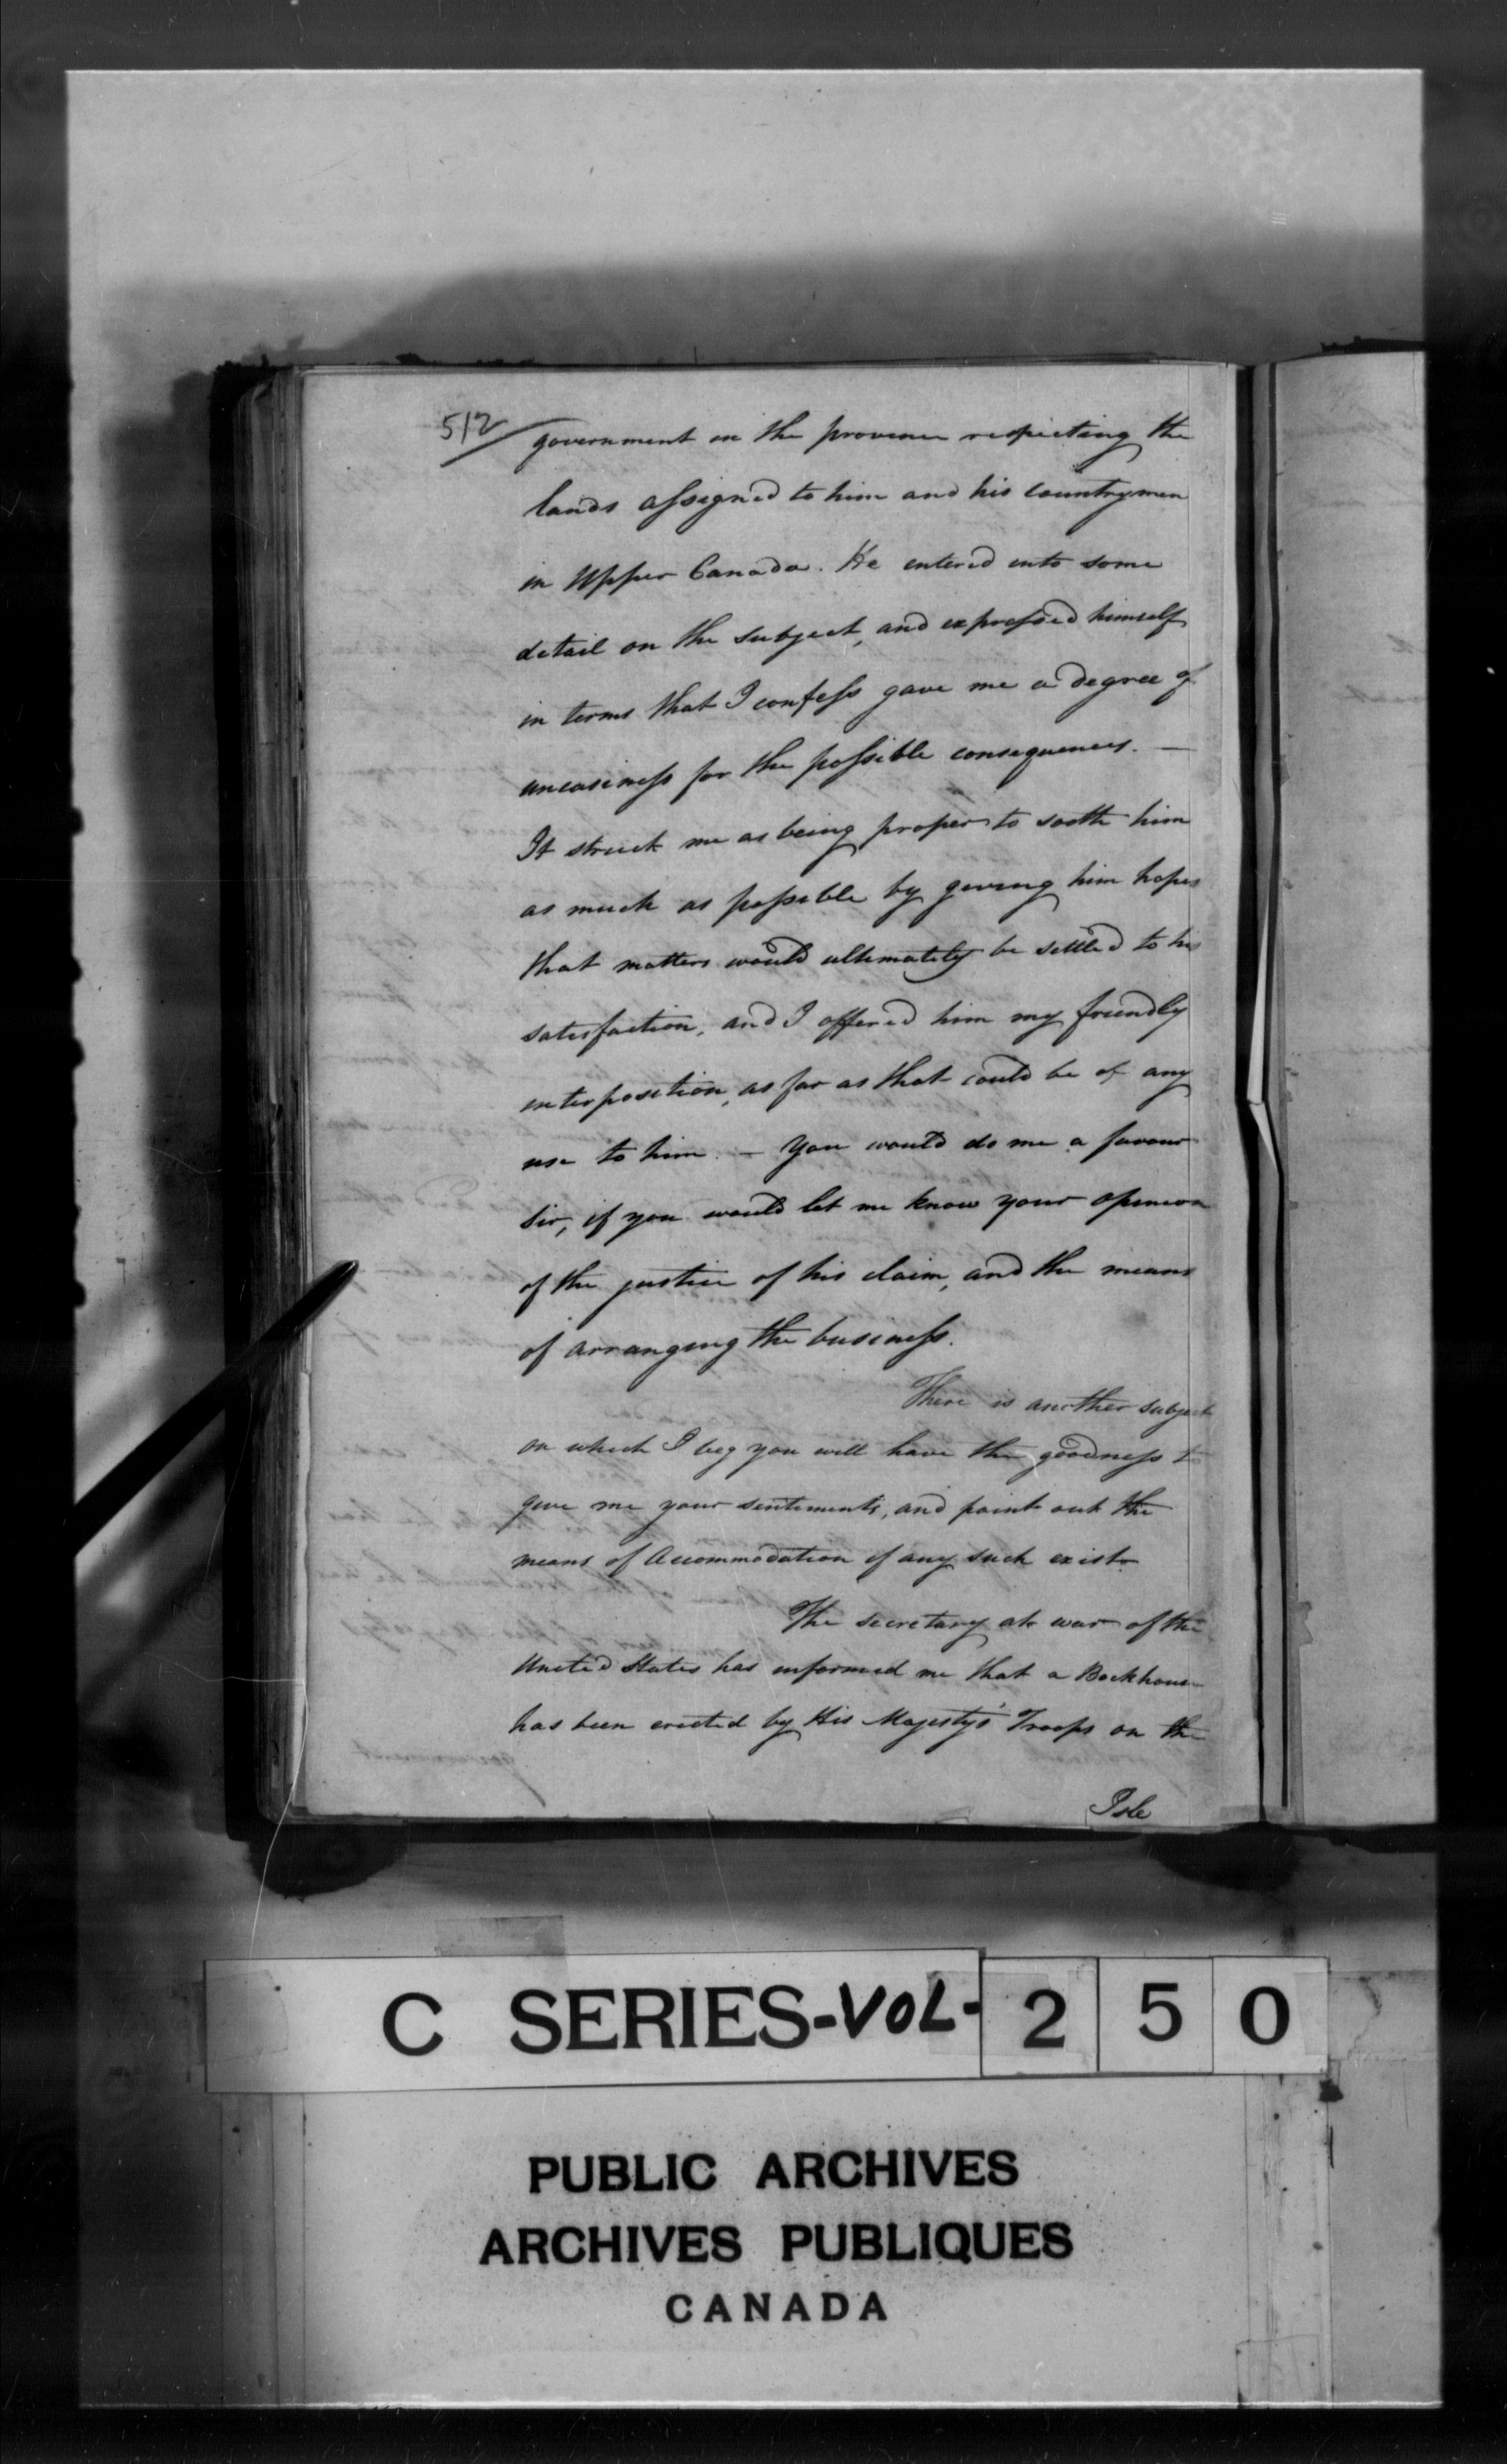 512
government in the province respecting the
lands assigned to him and his countrymen
in Upper Canada. He entered into some
detail on the subject, and expressed himself
in terms that I confess gave me a degree of
uneasiness for the possible consequences. —
It struck me as being proper to sooth him
as much as possible by giving him hopes
that matters would ultimately be settled to his
satisfaction, and I offered him my friendly
interposition, as far as that could be of any
use to him. — You would do me a favour
Sir, if you would let me know your opinion
of the justice of his claim, and the means
of arranging the business.
There is another subject
on which I beg you will have the goodness to
give me your sentiments, and point out the
means of Accommodation if any such exist.
The secretary at war of the
United States has informed me that a Bockhouse
has been erected by His Majesty's Troops on the
Isle
C SERIES-VOL-250
PUBLIC ARCHIVES
ARCHIVES PUBLIQUES
CANADA